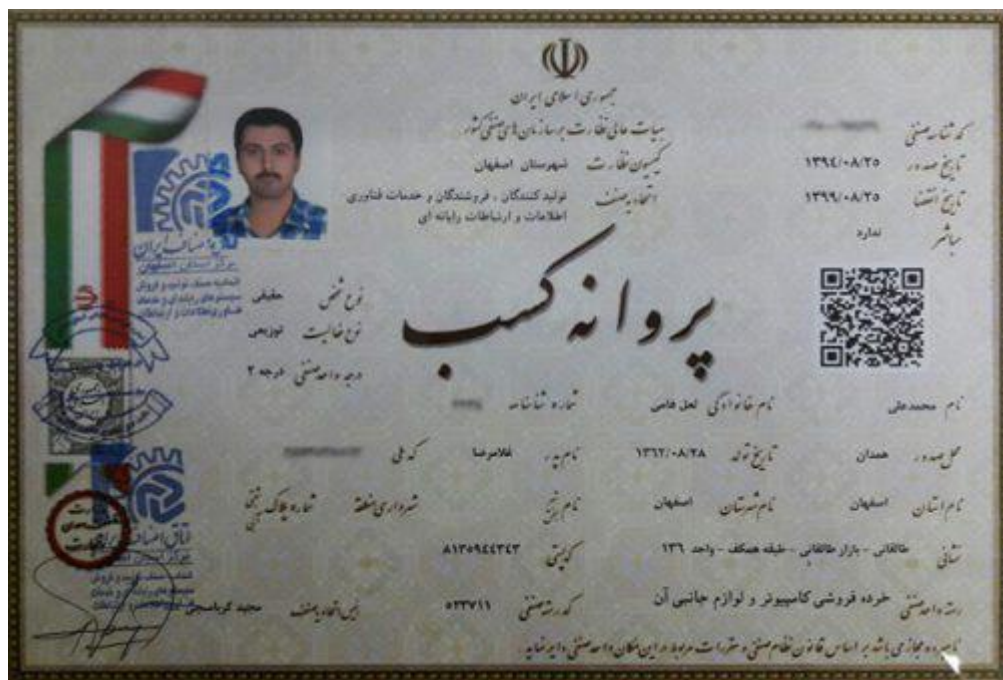 جمهوری اسلامی ایران
هیات عالی نظارت بر سازمان های صنفی کشور
کمیسیون نظارت شهرستان اصفهان
اتحادیه صنف تولید کنندگان ، فروشندگان و خدمات فناوری
اطلاعات و ارتباطات رایانه ای
کد شناسه صنفی
تاریخ صدور ۱۳۹٤/۰۸/۲٥
تاریخ انقضا ۱۳۹۹/۰۸/۲٥
مباشر ندارد
پروانه کسب
نوع شخص حقیقی
نوع فعالیت توزیعی
درجه واحد صنفی درجه ۲
اصناف ایران
مرکز استان اصفهان
نام محمدعلی نام خانوادگی لعل فامی شماره شناسنامه
محل صدور همدان تاریخ تولد ۱۳٦۲/۰۸/۲۸ نام پدر غلامرضا کد ملی
نام استان اصفهان نام شهرستان اصفهان نام بخش شهرداری منطقه شماره پلاک آبی
نشانی طالقانی - بازار طالقانی - طبقه همکف - واحد ۱۳٦ کدپستی ۸۱۳٥۹٤٤۳٤۳
رسته واحد صنفی خرده فروشی کامپیوتر و لوازم جانبی آن کد رسته صنفی ٥۲۳۷۱۱ رئیس اتحادیه صنف مجید کرباسچی
نامبرده مجاز می باشد بر اساس قانون نظام صنفی و مقررات مربوط در این مکان واحد صنفی دایر نماید .